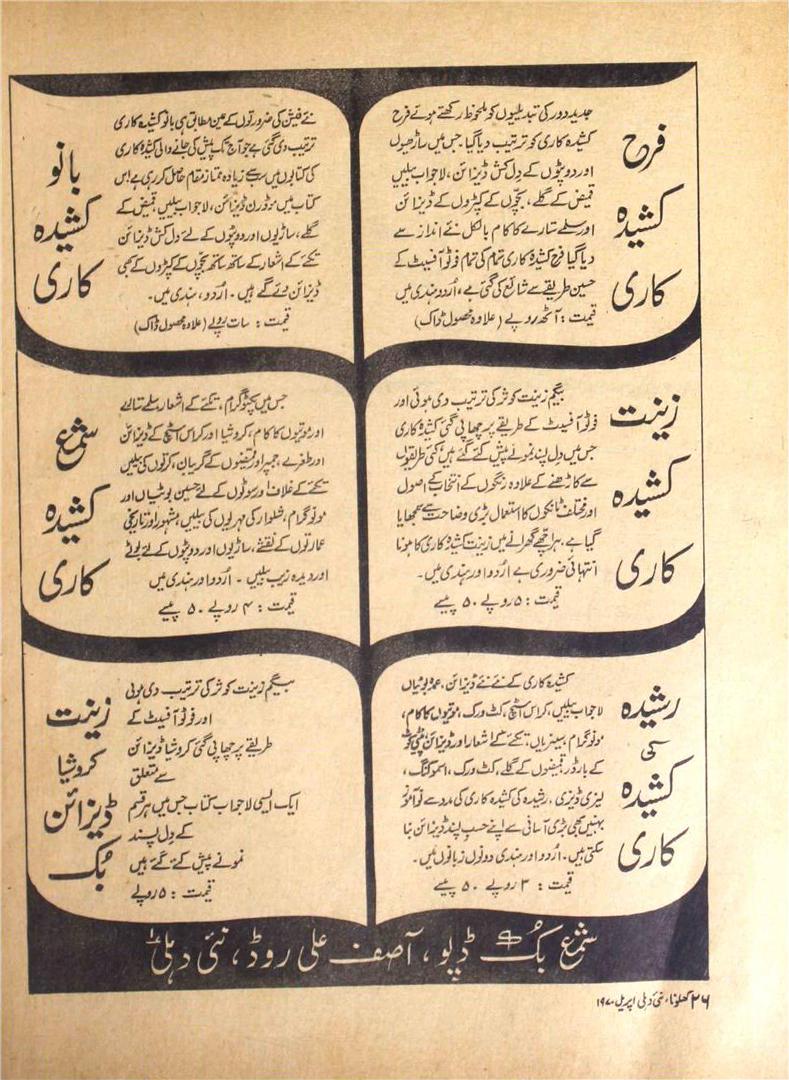 فرح
کشیدہ
کاری
جدید دور کی تبدیلیوں کو ملحوظ رکھتے ہوئے فرح
کشیدہ کاری کو ترتیب دیا گیا۔ جس میں ساڑھیوں
اور دوپٹوں کے دل کش ڈیزائن، لاجواب بیلیں
قمیض کے گلے، بچّوں کے کپڑوں کے ڈیزائن
اور سلمے ستارے کا کام بالکل نئے انداز سے
دیا گیا فرح کشیدہ کاری تمام کی تمام فوٹو آفسیٹ کے
حسین طریقے سے شائع کی گئی ہے، اُردو ہندی میں
قیمت : آٹھ روپے (علاوہ محصول ڈاک)
بانو
کشیدہ
کاری
نئے فیشن کی ضرورتوں کے عین مطابق ہی بانو کشیدہ کاری
ترتیب دی گئی ہے جو آج تک پیش کی جانے والی کشیدہ کاری
کی کتابوں میں سب سے زیادہ ممتاز مقام حاصل کر رہی ہے اس
کتاب میں موڈرن ڈیزائن، لاجواب بیلیں، قمیض کے
گلے، ساڑیوں اور دوپٹوں کے لئے دل کش ڈیزائن
تکئے کے اشعار کے ساتھ ساتھ بچّوں کے کپڑوں کے بھی
ڈیزائن دئے گئے ہیں ۔ اُردو، ہندی میں۔
قیمت : سات روپے (علاوہ محصول ڈاک)
زینت
کشیدہ
کاری
بیگم زینت کوثر کی ترتیب دی ہوئی اور
فوٹو آفسیٹ کے طریقے پر چھاپی گئی کشیدہ کاری
جس میں دل پسند نمونے پیش کئے گئے ہیں کئی طریقوں
سے کاڑھنے کے علاوہ رنگوں کے انتخاب کے اصول
اور مختلف ٹانکوں کا استعمال بڑی وضاحت سے سمجھایا
گیا ہے۔ ہر اچّھے گھرانے میں زینت کشیدہ کاری کا ہونا
انتہائی ضروری ہے اُردو اور ہندی میں۔
قیمت : ۵ روپے ۵۰ پیسے
شمع
کشیدہ
کاری
جس میں پکٹوگرام، تکئے کے اشعار سلمے ستارے
اور موتیوں کا کام، کروشیا اور کراس اسٹیچ کے ڈیزائن
اور طغرے، جمپر اور قمیضوں کے گریبان، کرتوں کی بیلیں
تکئے کے غلاف اور سوٹوں کے لئے حسین بوٹیاں اور
مونوگرام، شلوار کی مہریوں کی بیلیں، مشہور اور تاریخی
عمارتوں کے نقشے، ساڑیوں اور دوپٹوں کے لئے بوٹے
اور دیدہ زیب بیلیں ۔ اُردو اور ہندی میں
قیمت : ۴ روپے ۵۰ پیسے
رشیدہ
کی
کشیدہ
کاری
کشیدہ کاری کے نئے نئے ڈیزائن، عمدہ بوٹیاں
لاجواب بیلیں، کراس اسٹیچ، کٹ ورک، موتیوں کا کام،
مونوگرام، سینریاں، تکئے کے اشعار اور ڈیزائن، پیٹی کوٹ
کے بارڈر، قمیضوں کے گلے، کٹ ورک، اسموکنگ،
لیزی ڈیزی، رشیدہ کی کشیدہ کاری کی مدد سے نو آموز
بہنیں بھی بڑی آسانی سے اپنے حسب پسند ڈیزائن بنا
سکتی ہیں۔ اُردو اور ہندی دونوں زبانوں میں۔
قیمت : ۳ روپے ۵۰ پیسے
زینت
کروشیا
ڈیزائن
بُک
بیگم زینت کوثر کی ترتیب دی ہوئی
اور فوٹو آفسیٹ کے
طریقے پر چھاپی گئی کروشیا ڈیزائن
سے متعلق
ایک ایسی لاجواب کتاب جس میں ہر قسم
کے دل پسند
نمونے پیش کئے گئے ہیں
قیمت : ۵ روپے
شمع بک ڈپو، آصف علی روڈ، نئی دہلی ۱
۲۶ کھلونا، نئی دہلی اپریل ۱۹۷۰